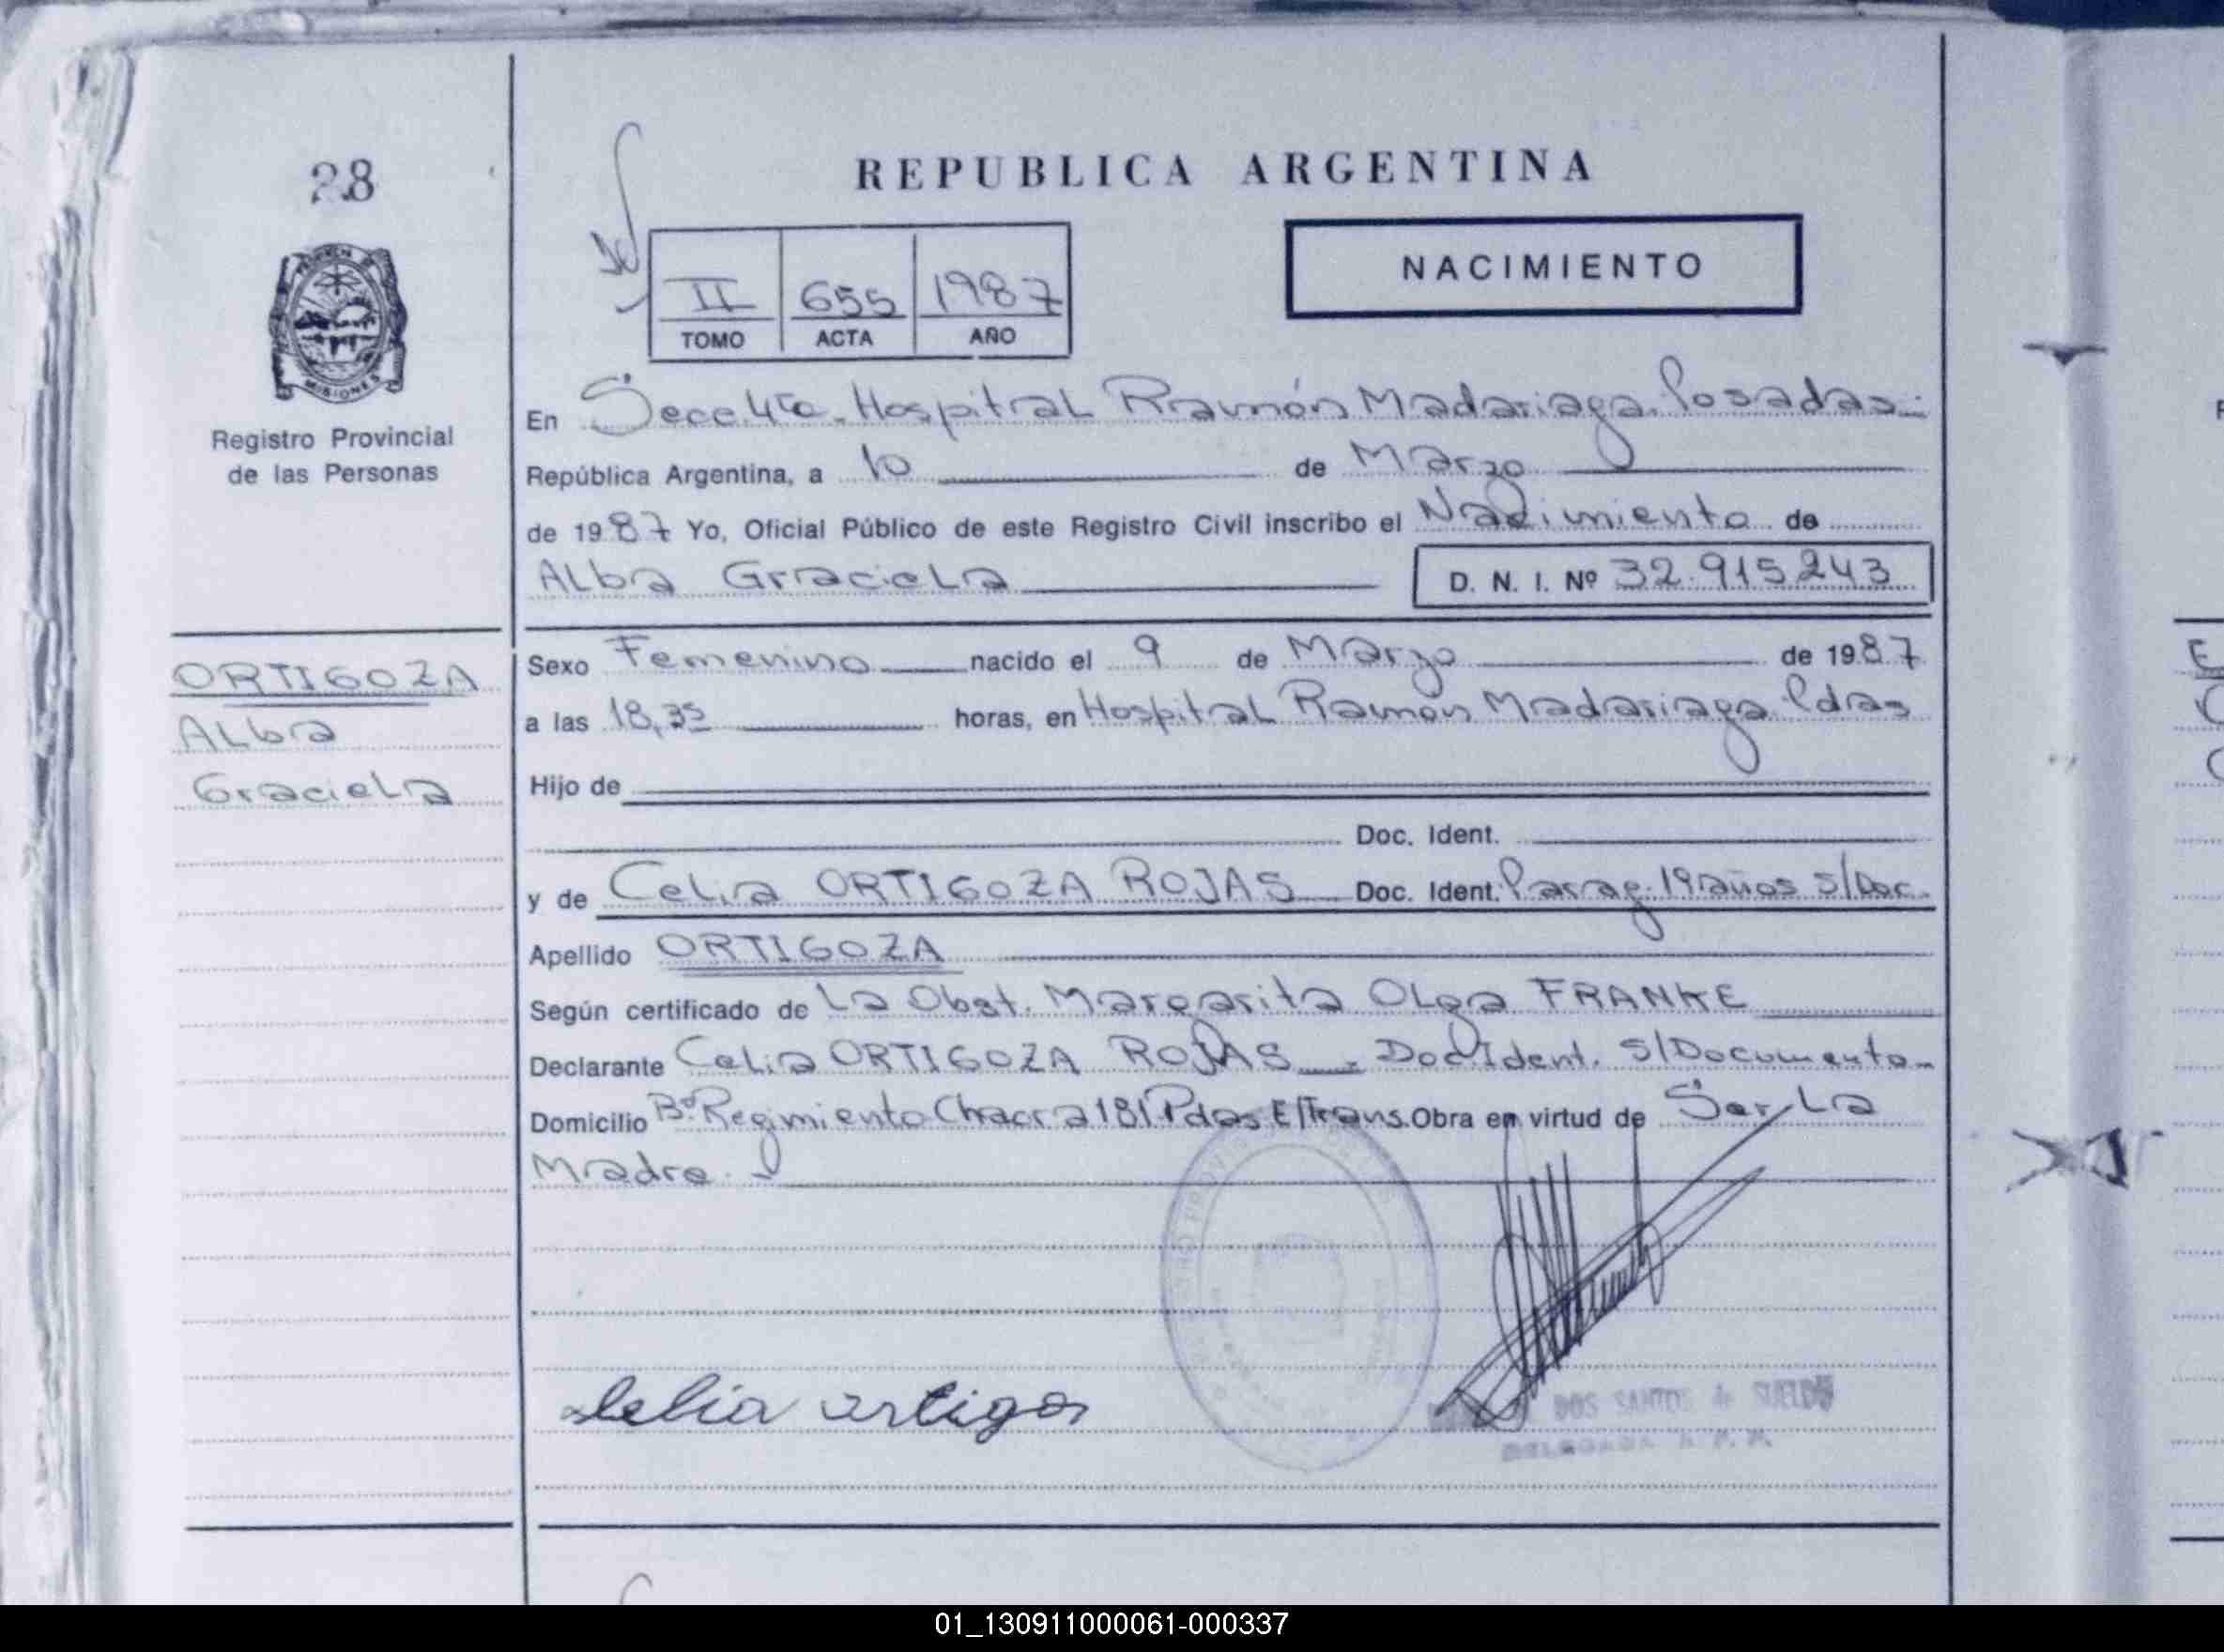 28
REPUBLICA ARGENTINA
NACIMIENTO
II 655 1987
TOMO ACTA AÑO
MISIONES
Registro Provincial
de las Personas
En Secc. 4ta. Hospital Ramón Madariaga. Posadas.-
República Argentina, a 10 de Marzo
de 1987 Yo, Oficial Público de este Registro Civil inscribo el Nacimiento de
Alba Graciela D. N. I. Nº 32.915.243
ORTIGOZA
Alba
Graciela
Sexo Femenino nacido el 9 de Marzo de 1987
a las 18,35 horas, en Hospital Ramón Madariaga Pdas
Hijo de
Doc. Ident.
y de Celia ORTIGOZA ROJAS Doc. Ident. Parag. 19 años s/Doc.
Apellido ORTIGOZA
Según certificado de La Obst. Margarita Olga FRANKE
Declarante Celia ORTIGOZA ROJAS - Doc Ident. S/Documento-
Domicilio Bº Regimiento Chacra 181 Pdas E/Trans. Obra en virtud de Ser La
Madre
Celia ortigoz
DOS SANTOS de SUELDO
DELEGADA R. P. P.
01_130911000061-000337